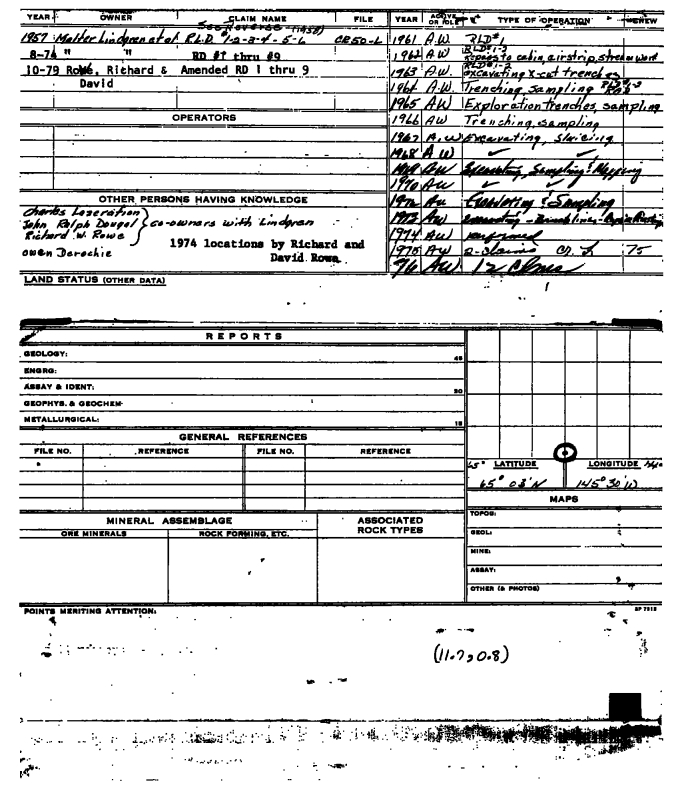 YEAR OWNER CLAIM NAME FILE
See Reverse (1958)
1957 Lindgren et al R.L.D. #1-2-3-4-5-L CR50-L
8-74 " " RD #1 thru #9
10-79 Rowe, Richard & Amended RD 1 thru 9
David
OPERATORS
OTHER PERSONS HAVING KNOWLEDGE
Charles
John Ralph Dougal } co-owners with Lindgren
Richard W. Rowe
Owen Derochie
1974 locations by Richard and
David Rowe
LAND STATUS (OTHER DATA)
YEAR ACTIVE OR IDLE TYPE OF OPERATION RENEW
1961 A.W RLD#1
1962 A.W RLD#1-2
repairs to cabin, airstrip, stream work
1963 A.W. RLD#1-2
excavating x-cut trenches
1964 A.W. Trenching, Sampling
1965 AW Exploration trenches, sampling
1966 AW Trenching, sampling
1967 A.W Excavating, sluicing
1968 A W ✓ ✓
1969 AW Excavating, Sampling, Mapping
1970 AW ✓ ✓
1972 AW Excavating & Sampling
1973 AW excavating
1974 AW performed
1975 AW 2-claims 75
76 AW 12 Clms
REPORTS
GEOLOGY:
ENGRG:
ASSAY & IDENT:
GEOPHYS. & GEOCHEM
METALLURGICAL:
GENERAL REFERENCES
FILE NO. REFERENCE FILE NO. REFERENCE
65° LATITUDE LONGITUDE
65° 03' N 145° 30' W
MAPS
TOPOG:
GEOL:
MINE:
ASSAY:
OTHER (& PHOTOS)
MINERAL ASSEMBLAGE ASSOCIATED ROCK TYPES
ORE MINERALS ROCK FORMING, ETC.
POINTS MERITING ATTENTION:
(11.7, 0.8)